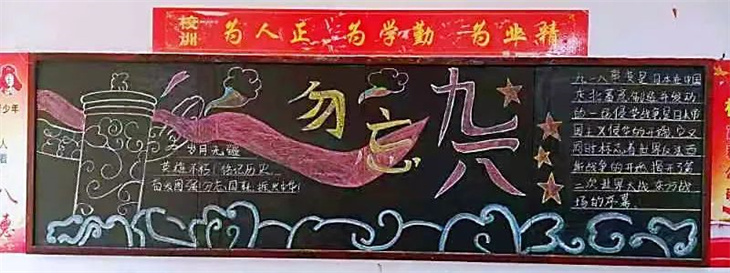 校训 为人正 为学勤 为业精
勿忘九一八
岁月无疆
英雄不朽！铭记历史
奋发图强勿忘国耻 振兴中华
九一八事变是日本在中国
东北蓄意制造并发动
的一场侵华战争是日本帝
国主义侵华的开端，它又
同时标志着世界反法西
斯战争的开始揭开了第
二次世界大战东方战
场的序幕
少年
人